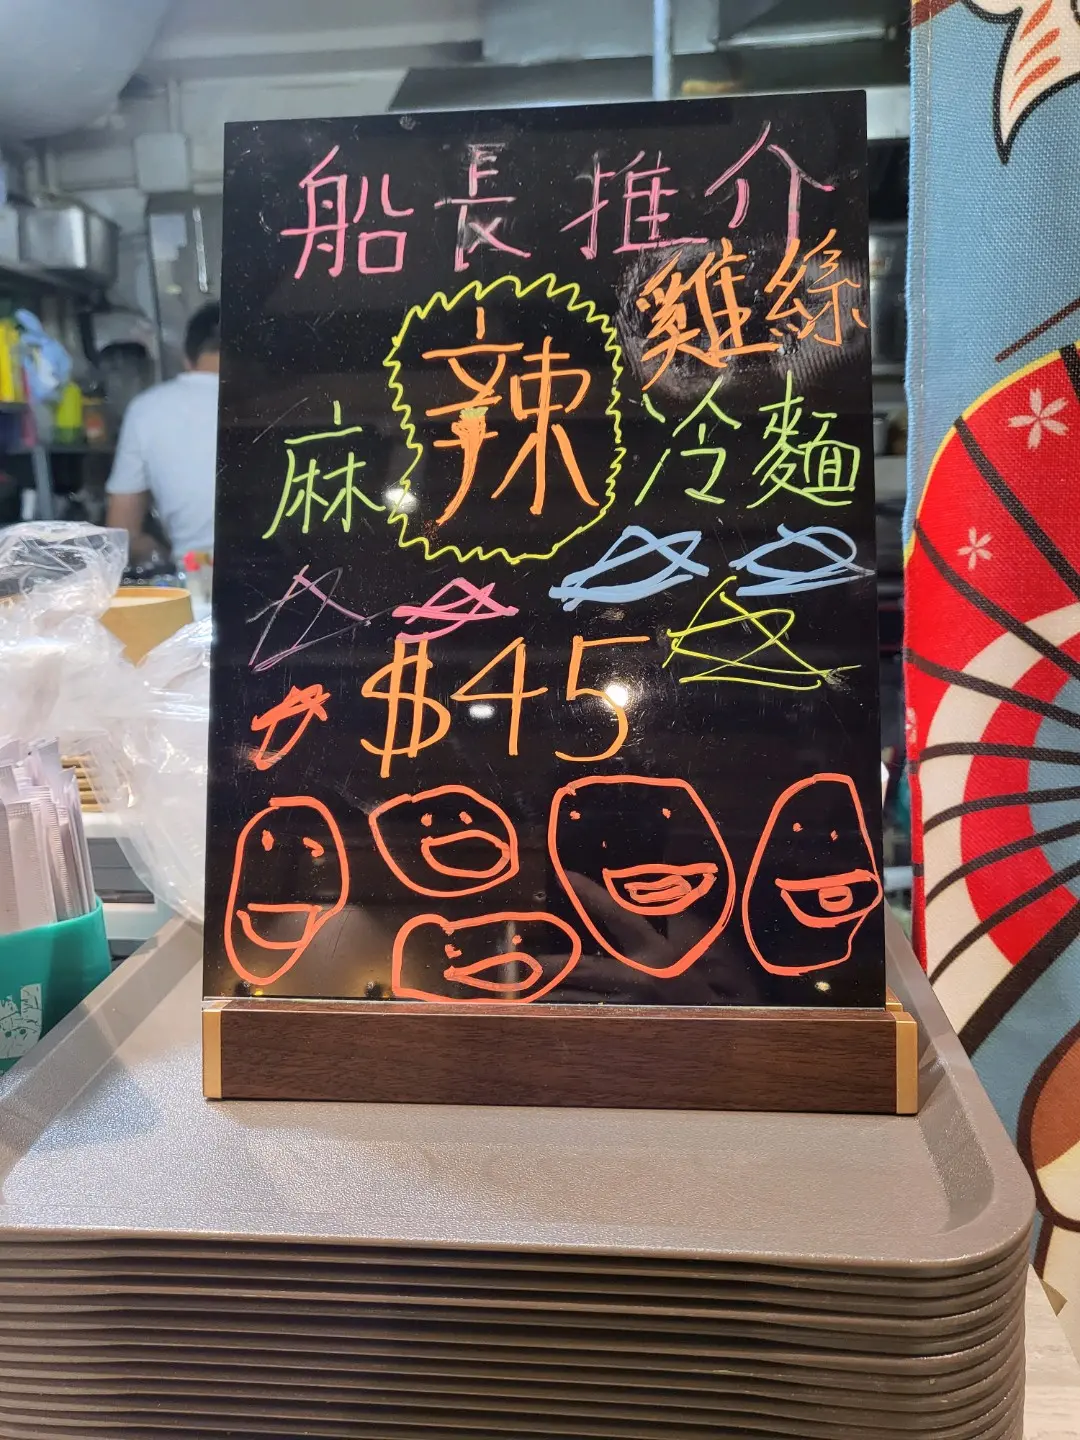 船長推介
雞絲
麻辣冷麵
$45